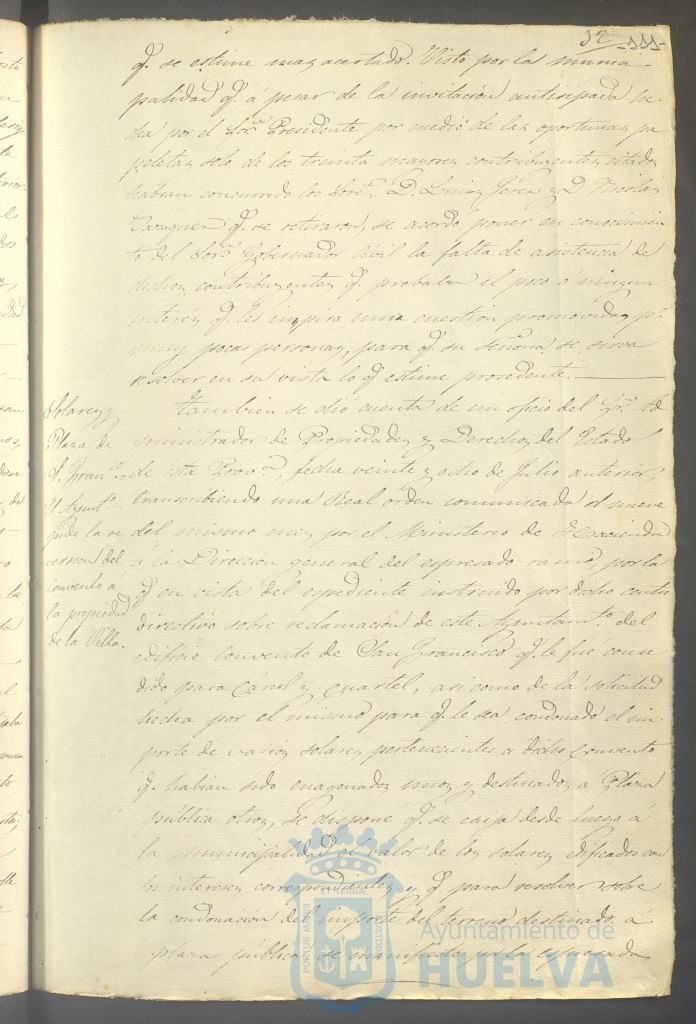 32 -111-
q.e se estime mas acertado. Visto por la munici
palidad q.e a pesar de la invitación anticipada he
cha por el Sor. Presidente por medio de las oportunas pa
peletas solo de los treinta mayores contribuyentes citados
habian concurrido los Sores. D. Luis Jerez y D Nicolas
Vazquez q.e se retiraron, se acordó poner en conocimien
to del Sor. Gobernador Civil la falta de asistencia de
dichos contribuyentes q.e probaba el poco ó ningun
interes q.e les inspira una cuestion promovida p.r
muy pocas personas, para q.e su Señoria se sirva
resolver en su vista lo q.e estime procedente.
Tambien se dio cuenta de un oficio del Sr. Ad
ministrador de Propiedades y Derechos del Estado
de esta Prov.a, fecha veinte y ocho de Julio anterior,
transcribiendo una Real orden comunicada el nueve
del mismo mes por el Ministerio de Hacienda
á la Dirección general del espresado ramo, por la
q.e en vista del espediente instruido por dicho centro
directivo sobre reclamación de este Ayuntam.to del
edificio convento de San Francisco q.e le fué conce
dido para Cárcel y cuartel, asi como de la solicitud
hecha por el mismo para q.e le sea condonado el im
porte de varios solares pertenecientes a dicho convento
q.e habian sido enagenados unos y destinados á Plaza
pública otros, se dispone q.e se exija desde luego á
la municipalidad el valor de los solares edificados con
los intereses correspondientes y q.e para resolver sobre
la condonación del importe del terreno destinado á
plaza pública se manifieste por la espresada
Solares y
Plaza de
S. Fran.co
El Ayunt.o
pide la re
version del
convento a
la propiedad
de la Villa.
PORTUS MARIS ET TERRAE CUSTODIA
Ayuntamiento de
HUELVA